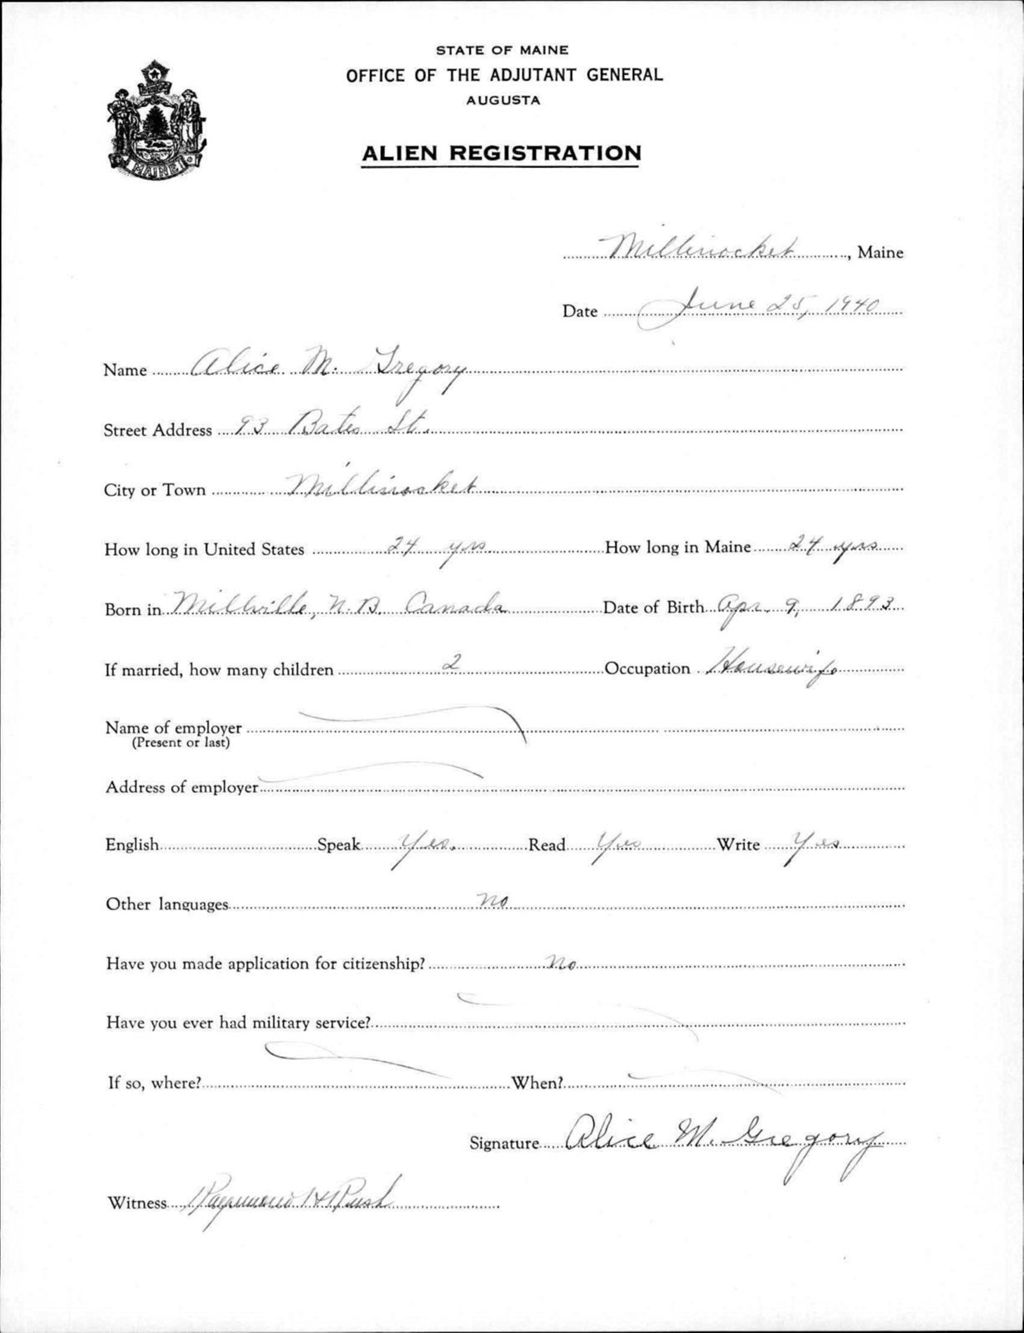 STATE OF MAINE
OFFICE OF THE ADJUTANT GENERAL
AUGUSTA
ALIEN REGISTRATION
MAINE
Millinocket, Maine
Date June 25, 1940
Name Alice M. Gregory
Street Address 93 Bates St.
City or Town Millinocket
How long in United States 24 yrs How long in Maine 24 yrs
Born in Millville, N.B. Canada Date of Birth Apr. 9, 1893
If married, how many children 2 Occupation Housewife
Name of employer
(Present or last)
Address of employer
English Speak Yes. Read Yes Write Yes
Other languages No
Have you made application for citizenship? No
Have you ever had military service?
If so, where? When?
Signature Alice M. Gregory
Witness Raymond H Rush